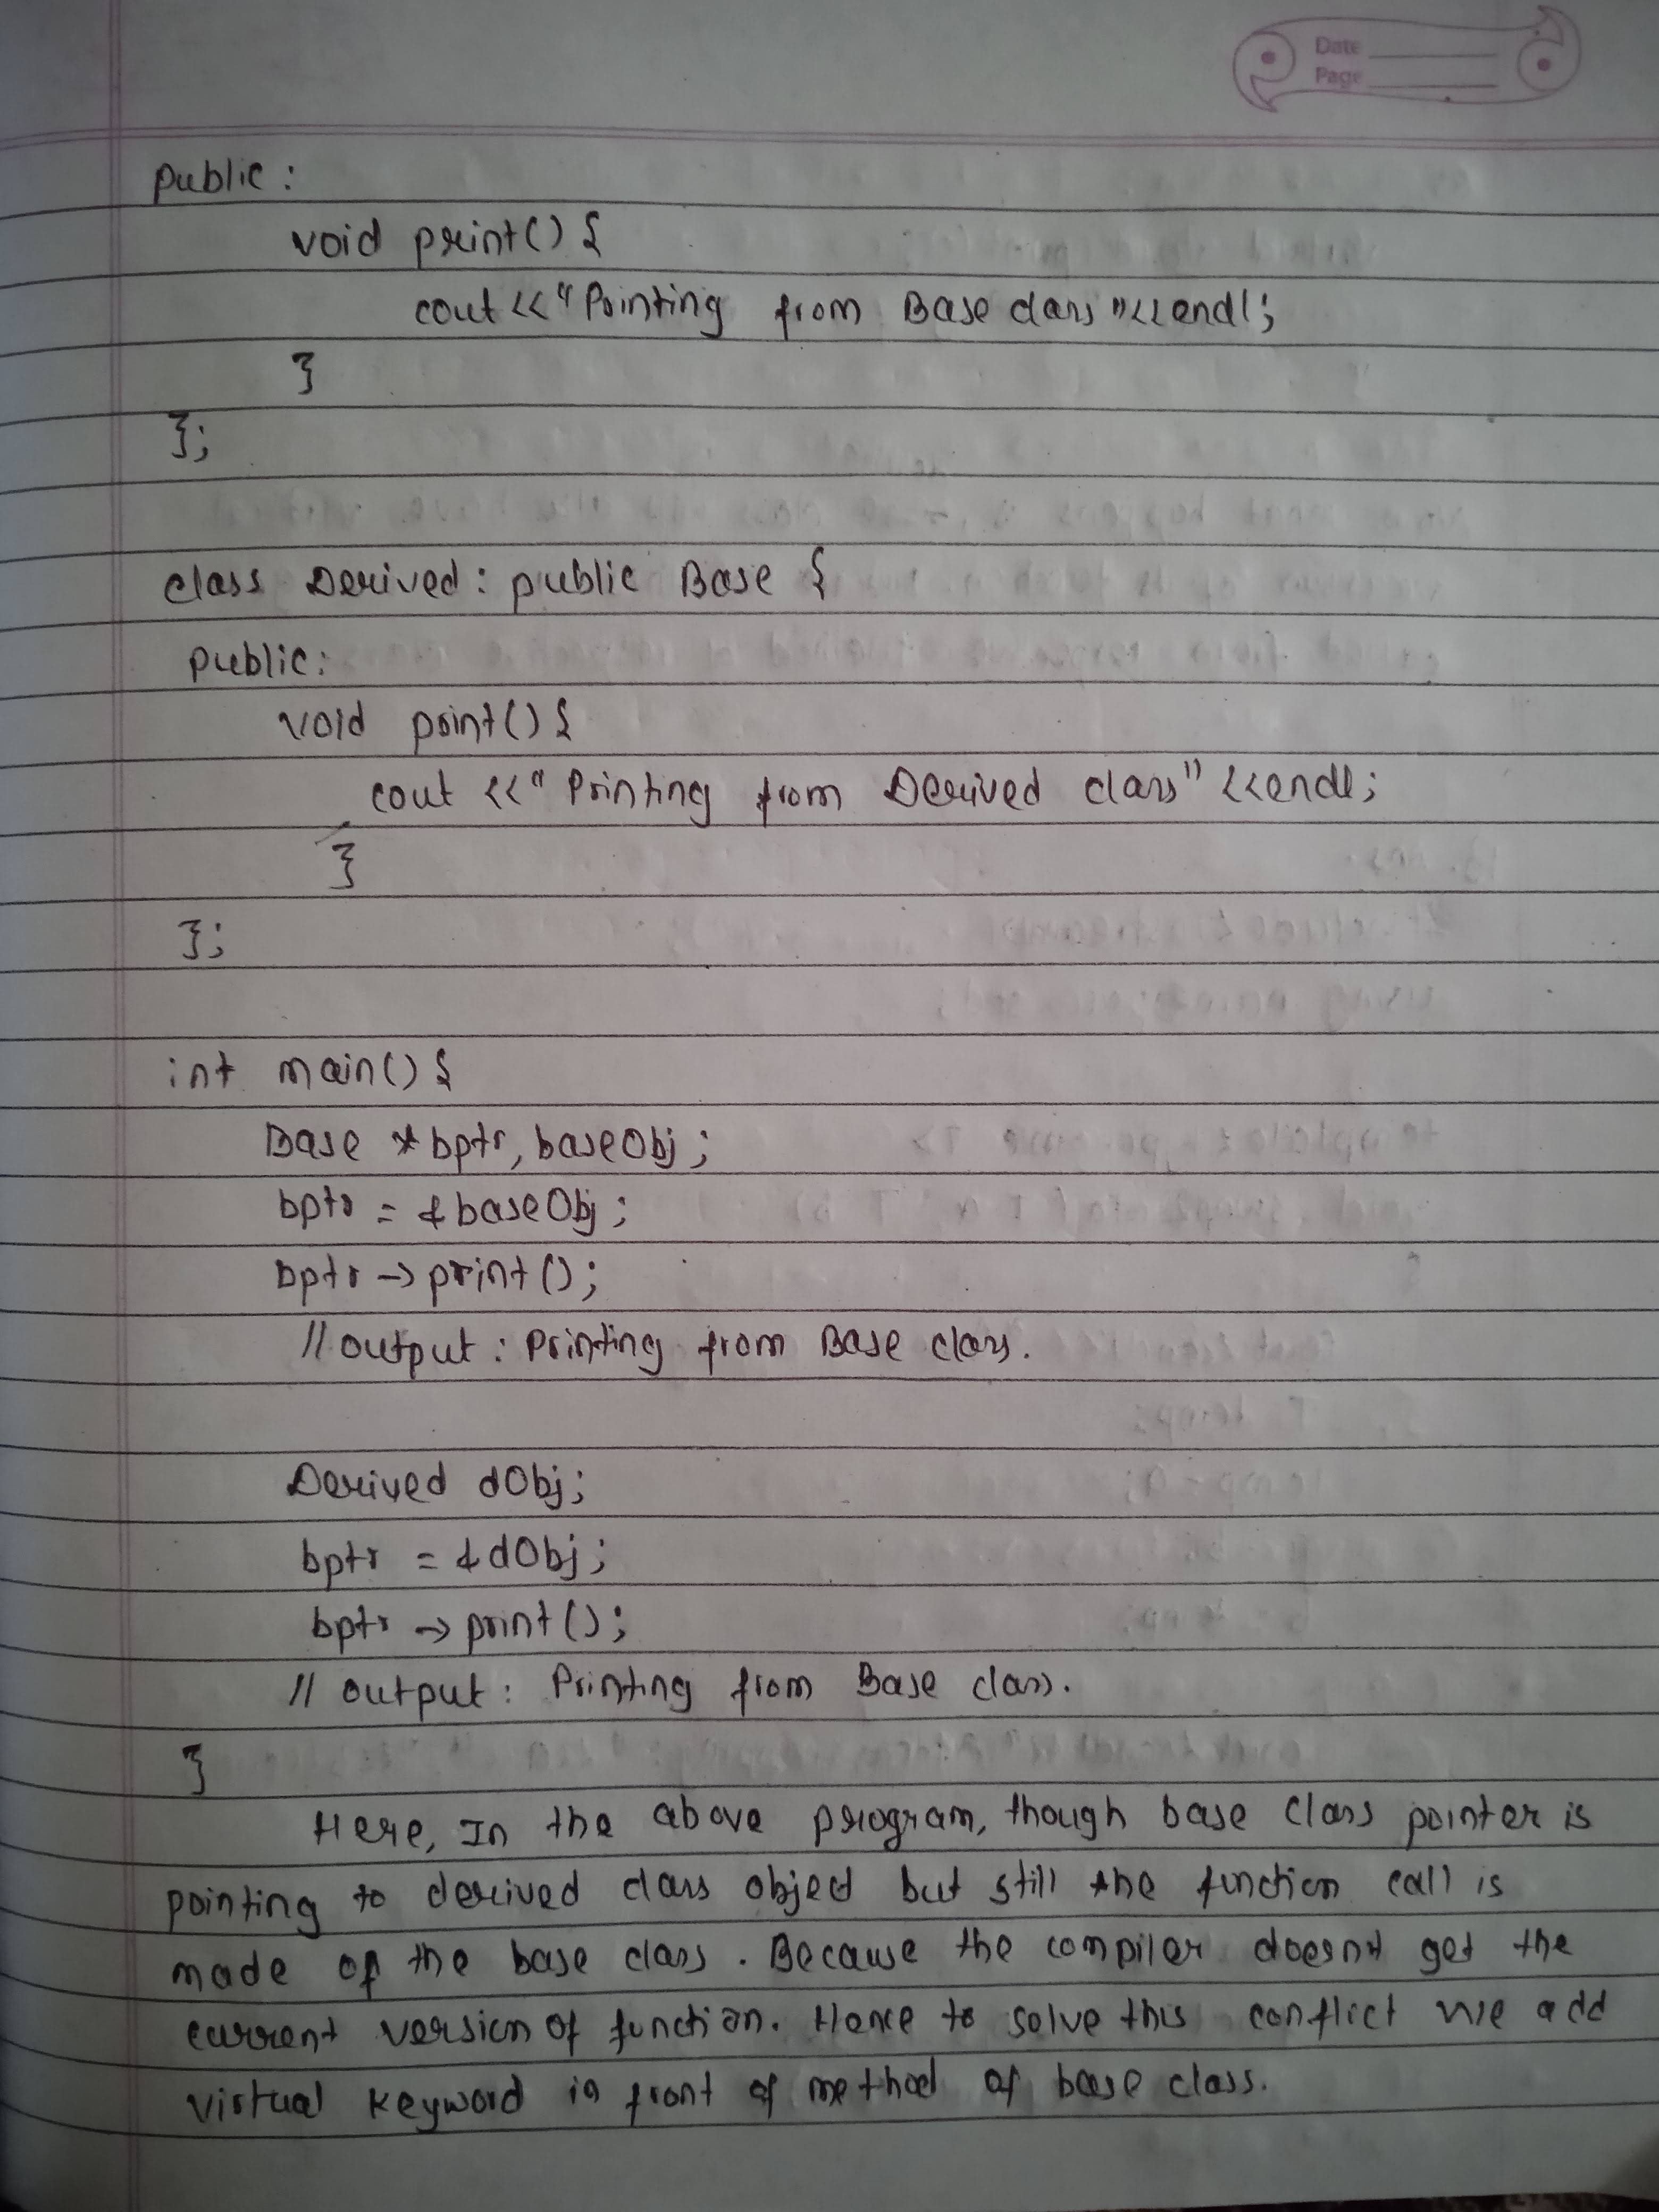 Date
Page
public:
void print() {
cout <<"Printing from Base class"<<endl;
}
};
class Derived: public Base {
public:
void print() {
cout <<"Printing from Derived class" <<endl;
}
};
int main() {
Base *bptr, baseObj;
bptr = &baseObj;
bptr -> print();
// output: Printing from Base class.
Derived dObj;
bptr = &dObj;
bptr -> print();
// output: Printing from Base class.
}
Here, In the above program, though base class pointer is
pointing to derived class object but still the function call is
made of the base class. Because the compiler doesn't get the
current version of function. Hence to solve this conflict we add
virtual keyword in front of method of base class.